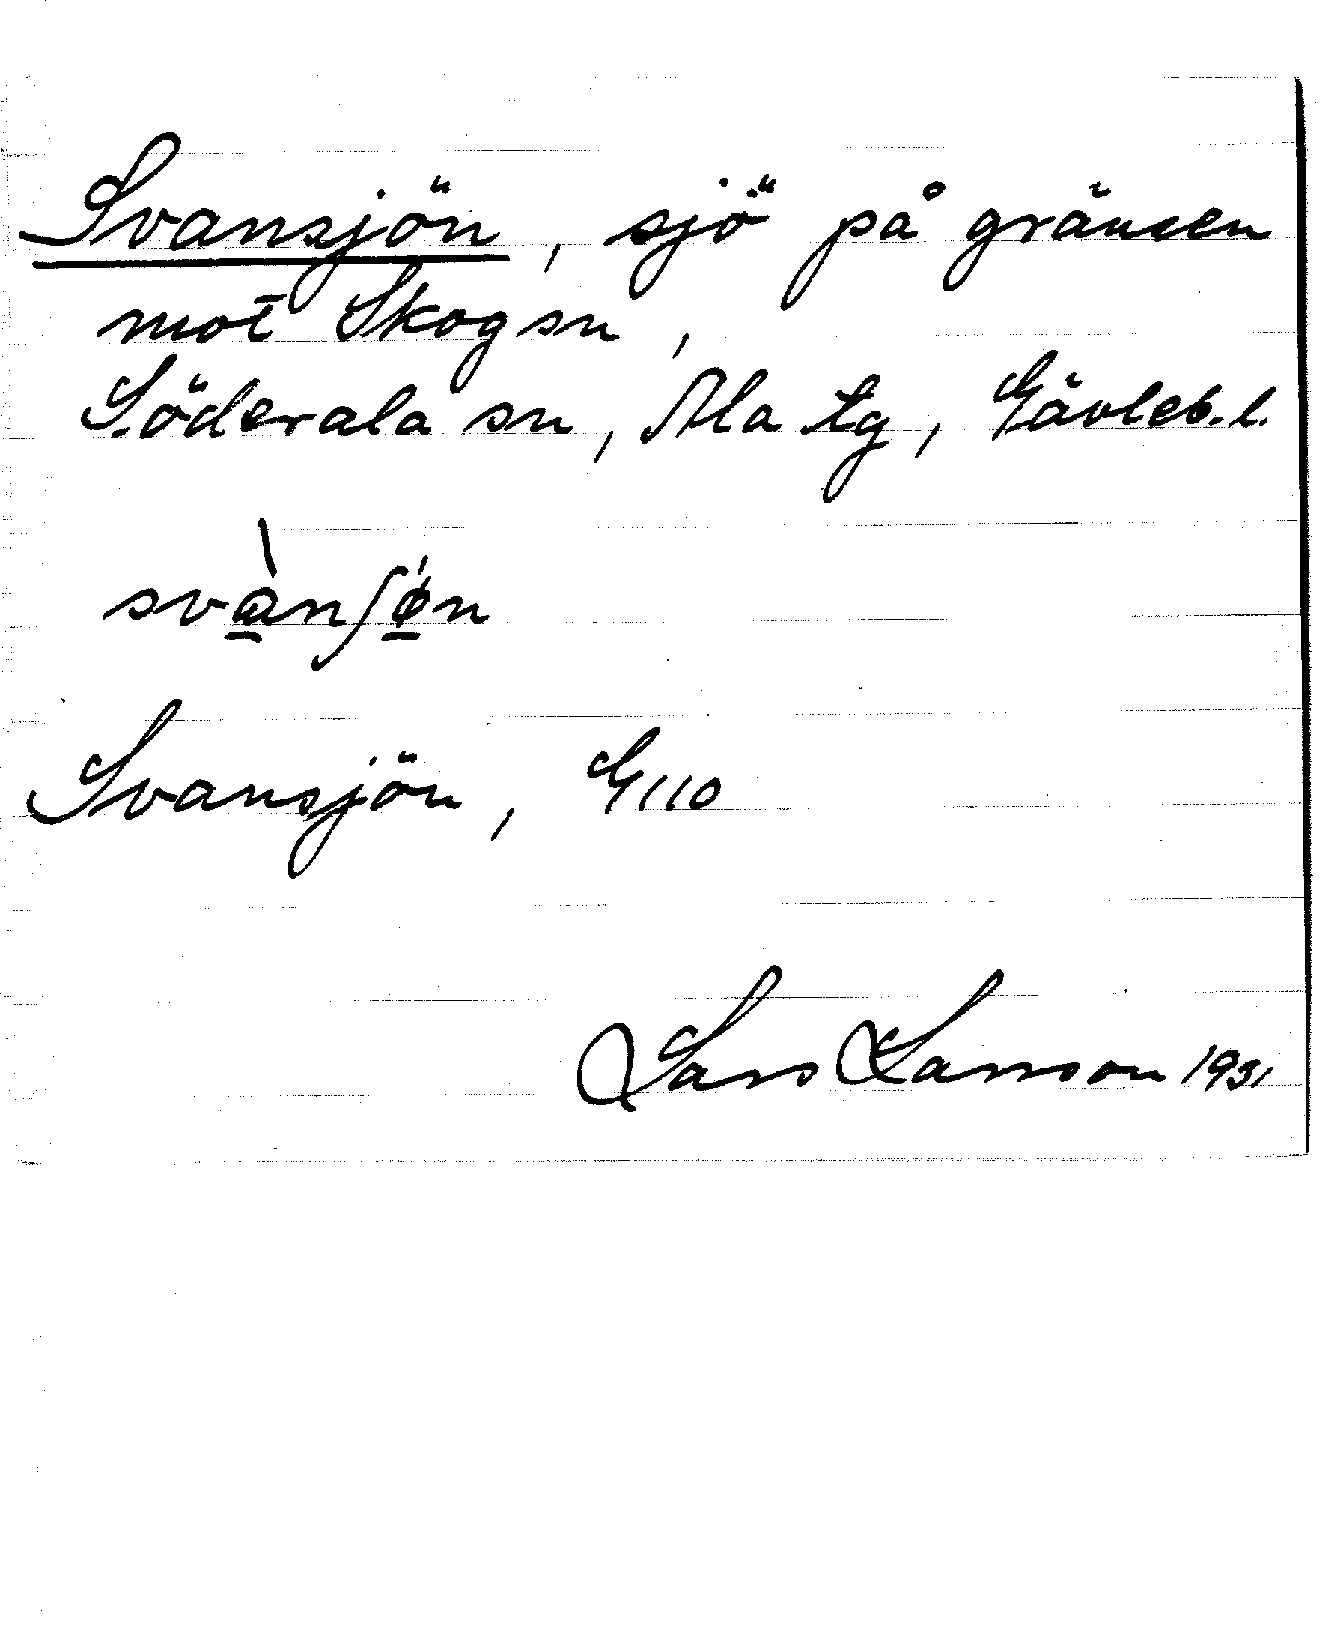 Svansjön, sjö på gränsen
mot Skog sn,
Söderala sn, Ala tg, Gävleb. l.
svànʃø̀n
Svansjön, G110
Lars Larsson 1931